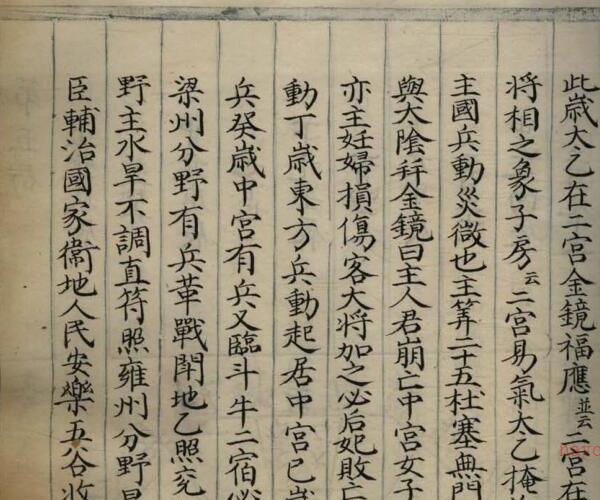 此歲太乙在二宮金鏡福應並云二宮在
將相之象子房云二宮易氣太乙掩
主國兵動災徵也主筭二十五杜塞無門
與太陰并金鏡曰主人君崩亡中宮女子
亦主妊婦損傷客大將加之必后妃敗亡
動丁歲東方兵動起居中宮巳歲
兵癸歲中宮有兵又臨斗牛二宿必
梁州分野有兵革戰鬪地乙照兖
野主水旱不調直符照雍州分野
臣輔治國家衛地人民安樂五谷收